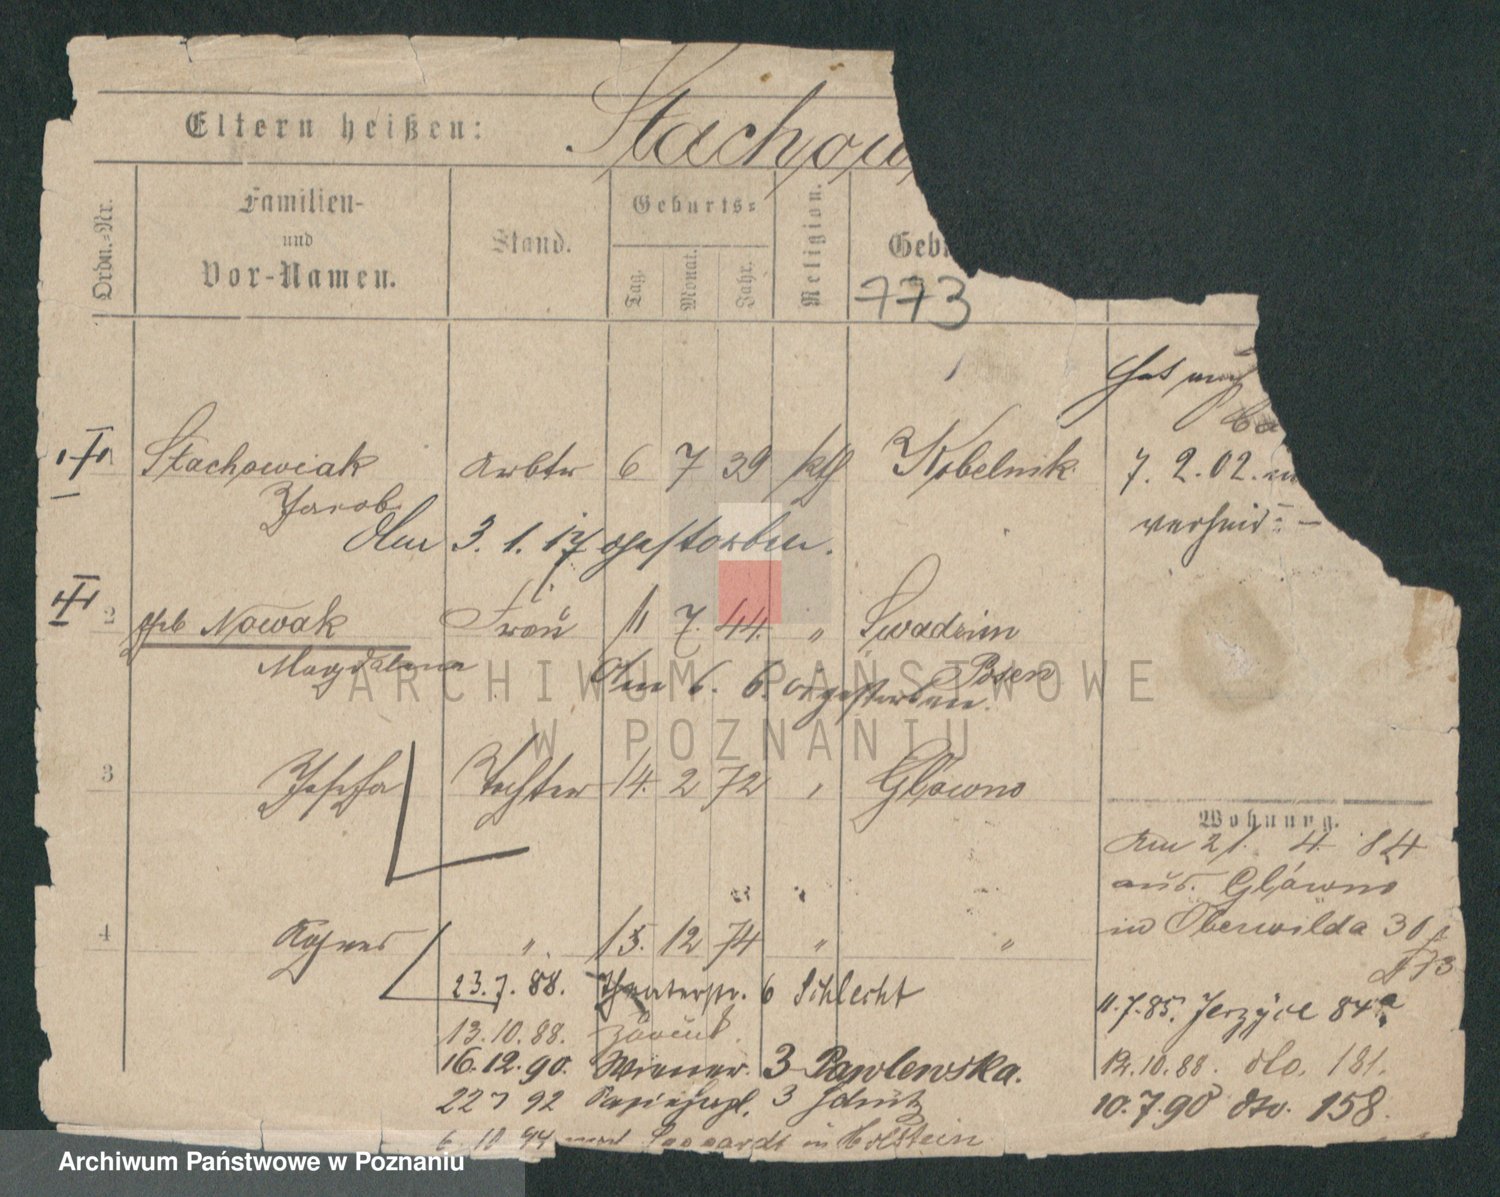 Eltern heißen:
Stachow
Ordn.-Nr.
Familien-
und
Vor-Namen.
Stand.
Geburts-
Tag.
Monat.
Jahr.
Religion.
Geb
773
7. 2. 02.
Stachowiak Arbtr 6 7 39 kth Kobelnik
Jacob
Am 3. 1. 17 gestorben.
2 geb Nowak Frau 11 7. 44. " Swadzim
Magdalena
Posen
Am 6. 6. 01 gestorben.
3 Josefa Tochter 14. 2 72 " Główno
Wohnung.
Am 21. 4. 84
aus Główno
in Oberwilda 30
4 Agnes " 15. 12 74 " "
23.7.88. Theaterstr. 6 Schlecht
11.7.85. Jerzyce 84a
13.10.88. zurück.
16.12.90. Wiener. 3 Pawlewska.
12.10.88. dto. 181.
22 7 92 3
10.7.90 dto. 158.
6. 10 94 nach in Holstein
ARCHIWUM PAŃSTWOWE
W POZNANIU
Archiwum Państwowe w Poznaniu